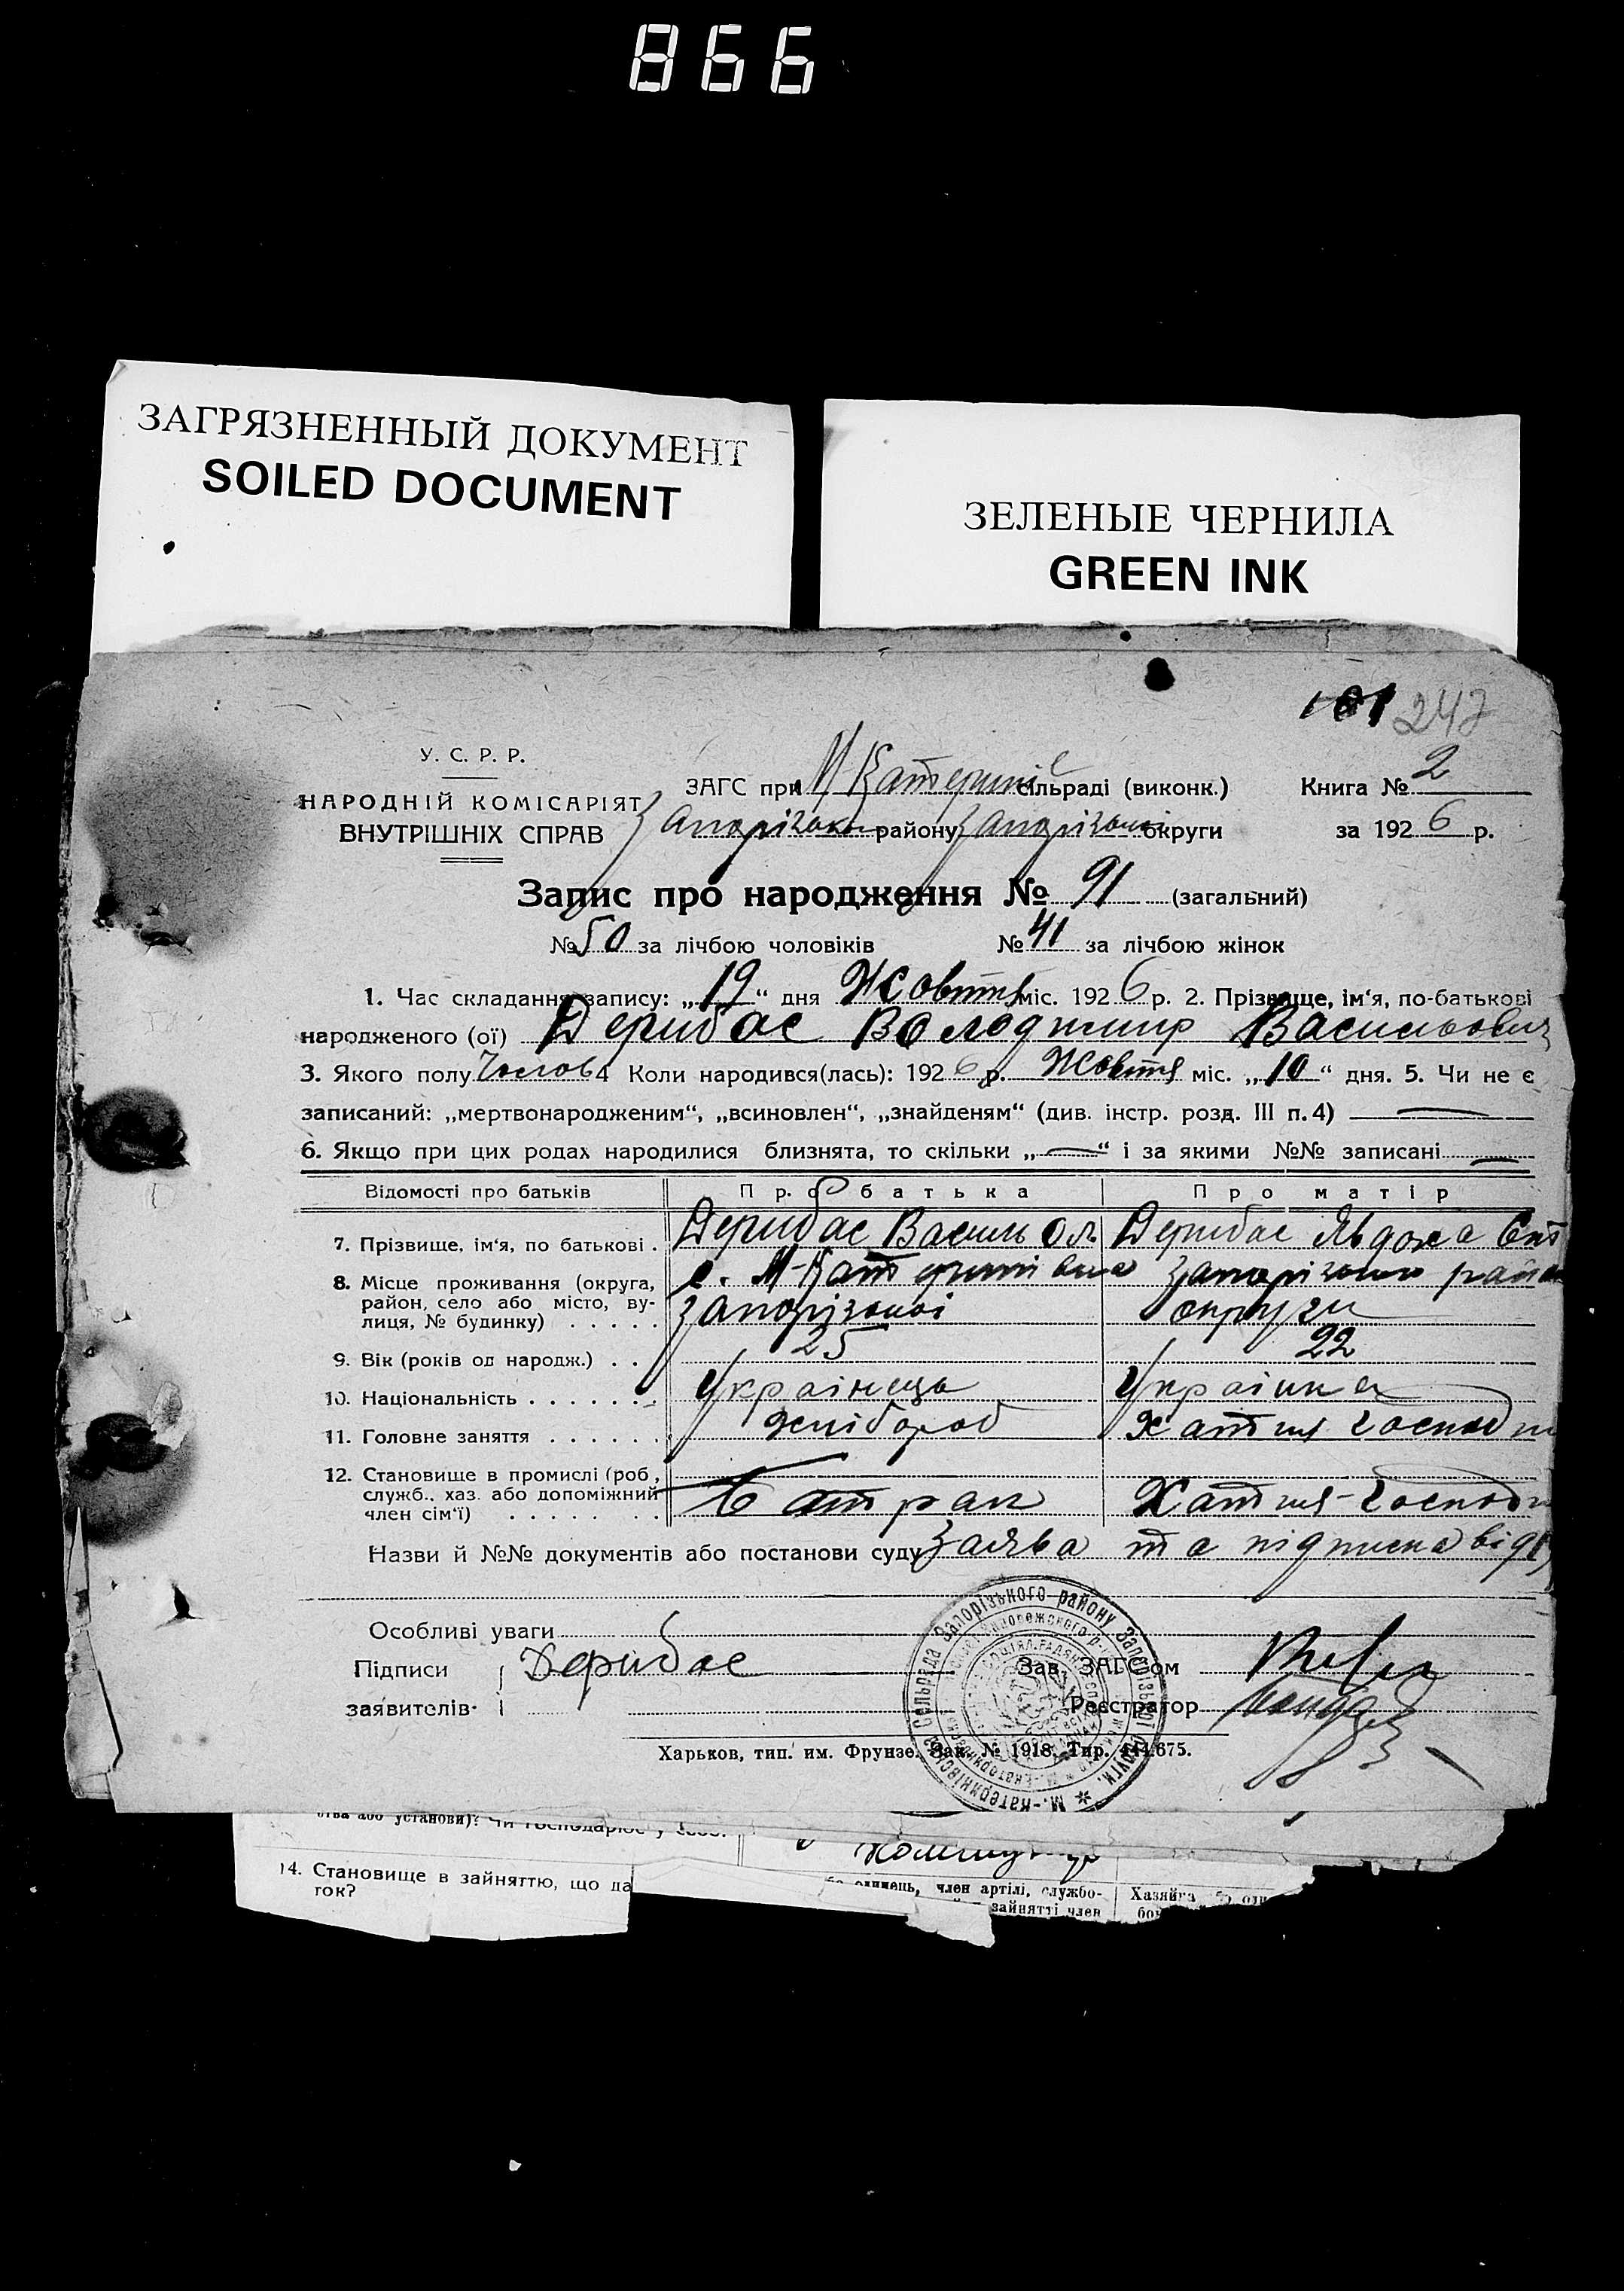 866
ЗАГРЯЗНЕННЫЙ ДОКУМЕНТ
SOILED DOCUMENT
ЗЕЛЕНЫЕ ЧЕРНИЛА
GREEN INK
101 247
У. С. Р. Р.
НАРОДНІЙ КОМІСАРІЯТ
ВНУТРІШНІХ СПРАВ
ЗАГС при М-Катерині сільраді (виконк.) Книга № 2
Запорізьк району Запорізької округи за 1926 р.
Запис про народження № 91 (загальний)
№ 50 за лічбою чоловіків № 41 за лічбою жінок
1. Час складання запису: „19“ дня Жовтня міс. 1926 р. 2. Прізвище, ім‘я, по-батькові
народженого (ої) Дерибас Володимир Васильович
3. Якого полу Чолов 4 Коли народився(лась): 1926 р. Жовтня міс. „10“ дня. 5. Чи не є
записаний: „мертвонародженим“, „всиновлен“, „знайденям“ (див. інстр. розд. III п. 4) —
6. Якщо при цих родах народилися близнята, то скільки „—“ і за якими №№ записані —
Відомості про батьків Про батька Про матір
7. Прізвище, ім‘я, по батькові . Дерибас Василь Ол. Дерибас Явдоха
8. Місце проживання (округа, район, село або місто, вулиця, № будинку) . . . . . с. М-Катеринівка Запорізького рай
Запорізької округи
9. Вік (років од народж.) . . 25 22
10. Національність . . . . . . . Українець Українка
11. Головне заняття . . . . . . Хлібороб Хатня господ
12. Становище в промислі (роб, служб., хаз. або допоміжний член сім‘ї) . . . . . . . Батрак Хатня-господ
Назви й №№ документів або постанови суду Заява та підписка
Особливі уваги
Підписи Дерибас Зав. ЗАГС‘ом
заявителів Реєстратор
Харьков, тип. им. Фрунзе. Зак. № 1918. Тир. 444.675.
М.-Катеринівська Сельрада Запорізького району Запорізької округи.
14. Становище в зайняттю, що да
ток?
член артілі, службо-
зайнятті член
Хазяйка